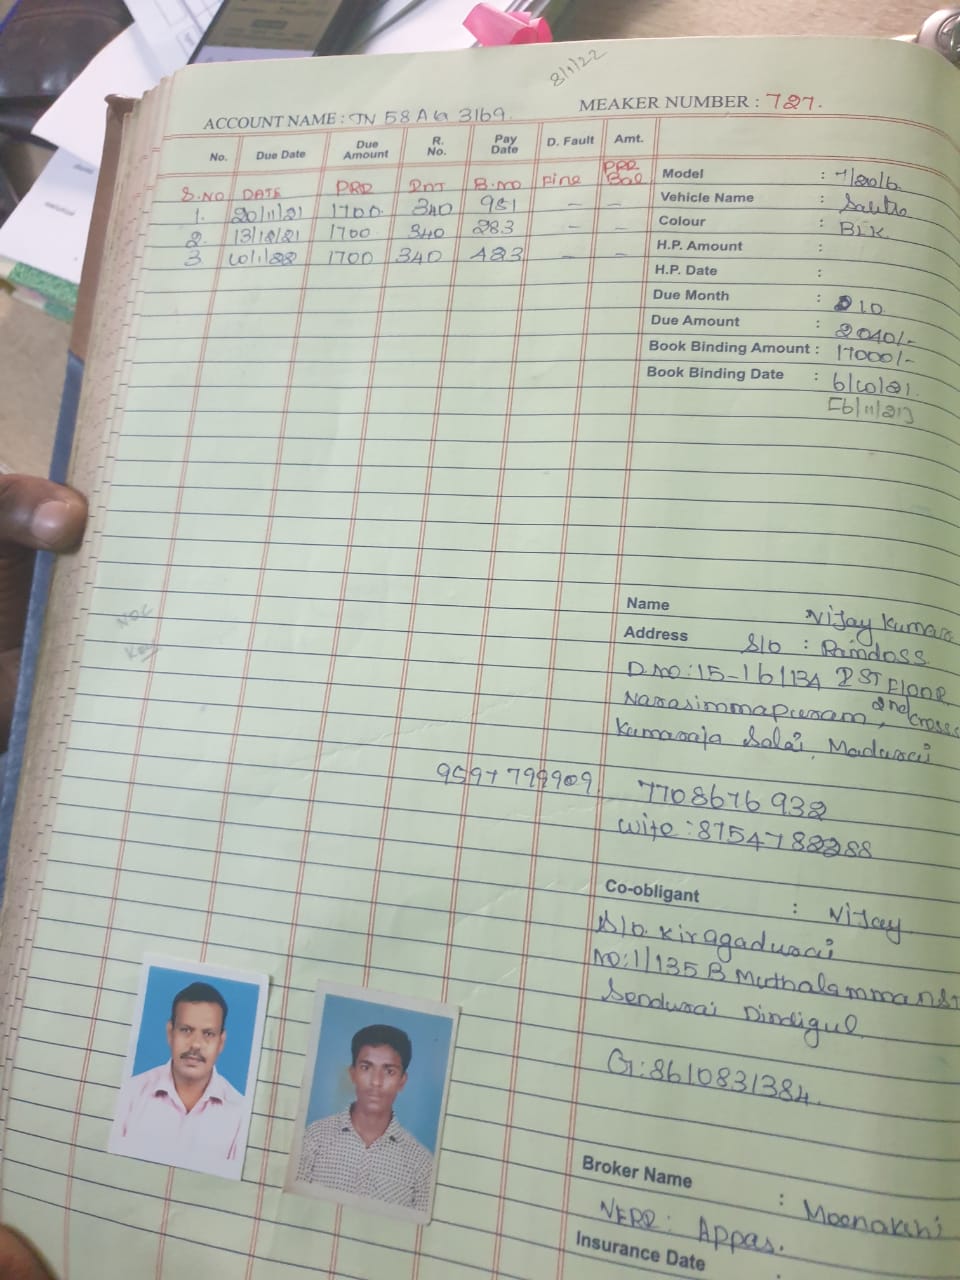 8/1/22
ACCOUNT NAME : TN 58 AG 3169. MEAKER NUMBER : 727.
No. Due Date Due Amount R. No. Pay Date D. Fault Amt.
S.NO DATE PRD INT B.NO Fine PRD Bal
1. 20/11/21 1700. 340 981 – –
2. 13/12/21 1700 340 283 – –
3 10/1/22 1700 340 483 – –
Model : 7/2016
Vehicle Name :
Colour : BLK.
H.P. Amount :
H.P. Date :
Due Month : 10.
Due Amount : 2040/-
Book Binding Amount : 17000/-
Book Binding Date : 6/10/21.
[6/11/21]
NOC
Key
Name Vijay Kumar
Address S/o : Ramdoss.
D.NO : 15-16/134 1ST FLOOR
Narasimmapuram, 2nd Cross
Kamaraja Salai, Madurai
9597799909. 7708676932
Wife : 8754782288
Co-obligant : Vijay
S/o. Kiragadurai
NO: 1/135 B Muthalamman ST
Sendurai Dindigul.
G: 8610831384.
Broker Name : Meenakshi
Appas.
Insurance Date :